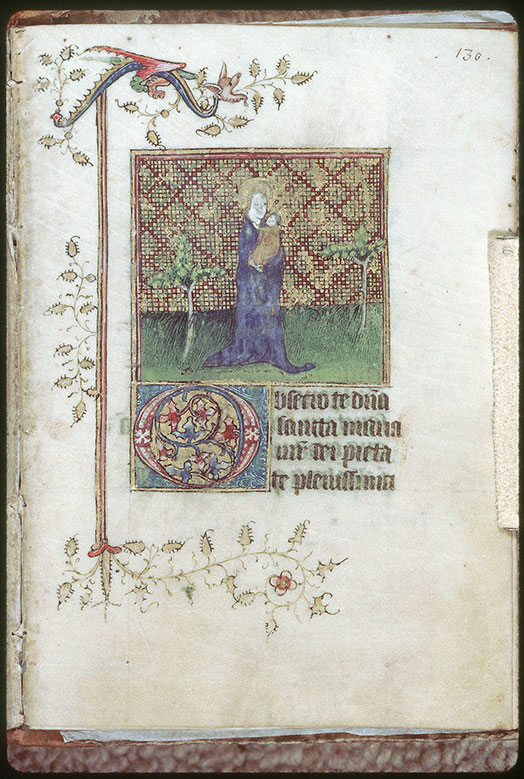 130.
Obsecro te dn̄a
sancta maria
mr̄ dei pieta
te plenissima